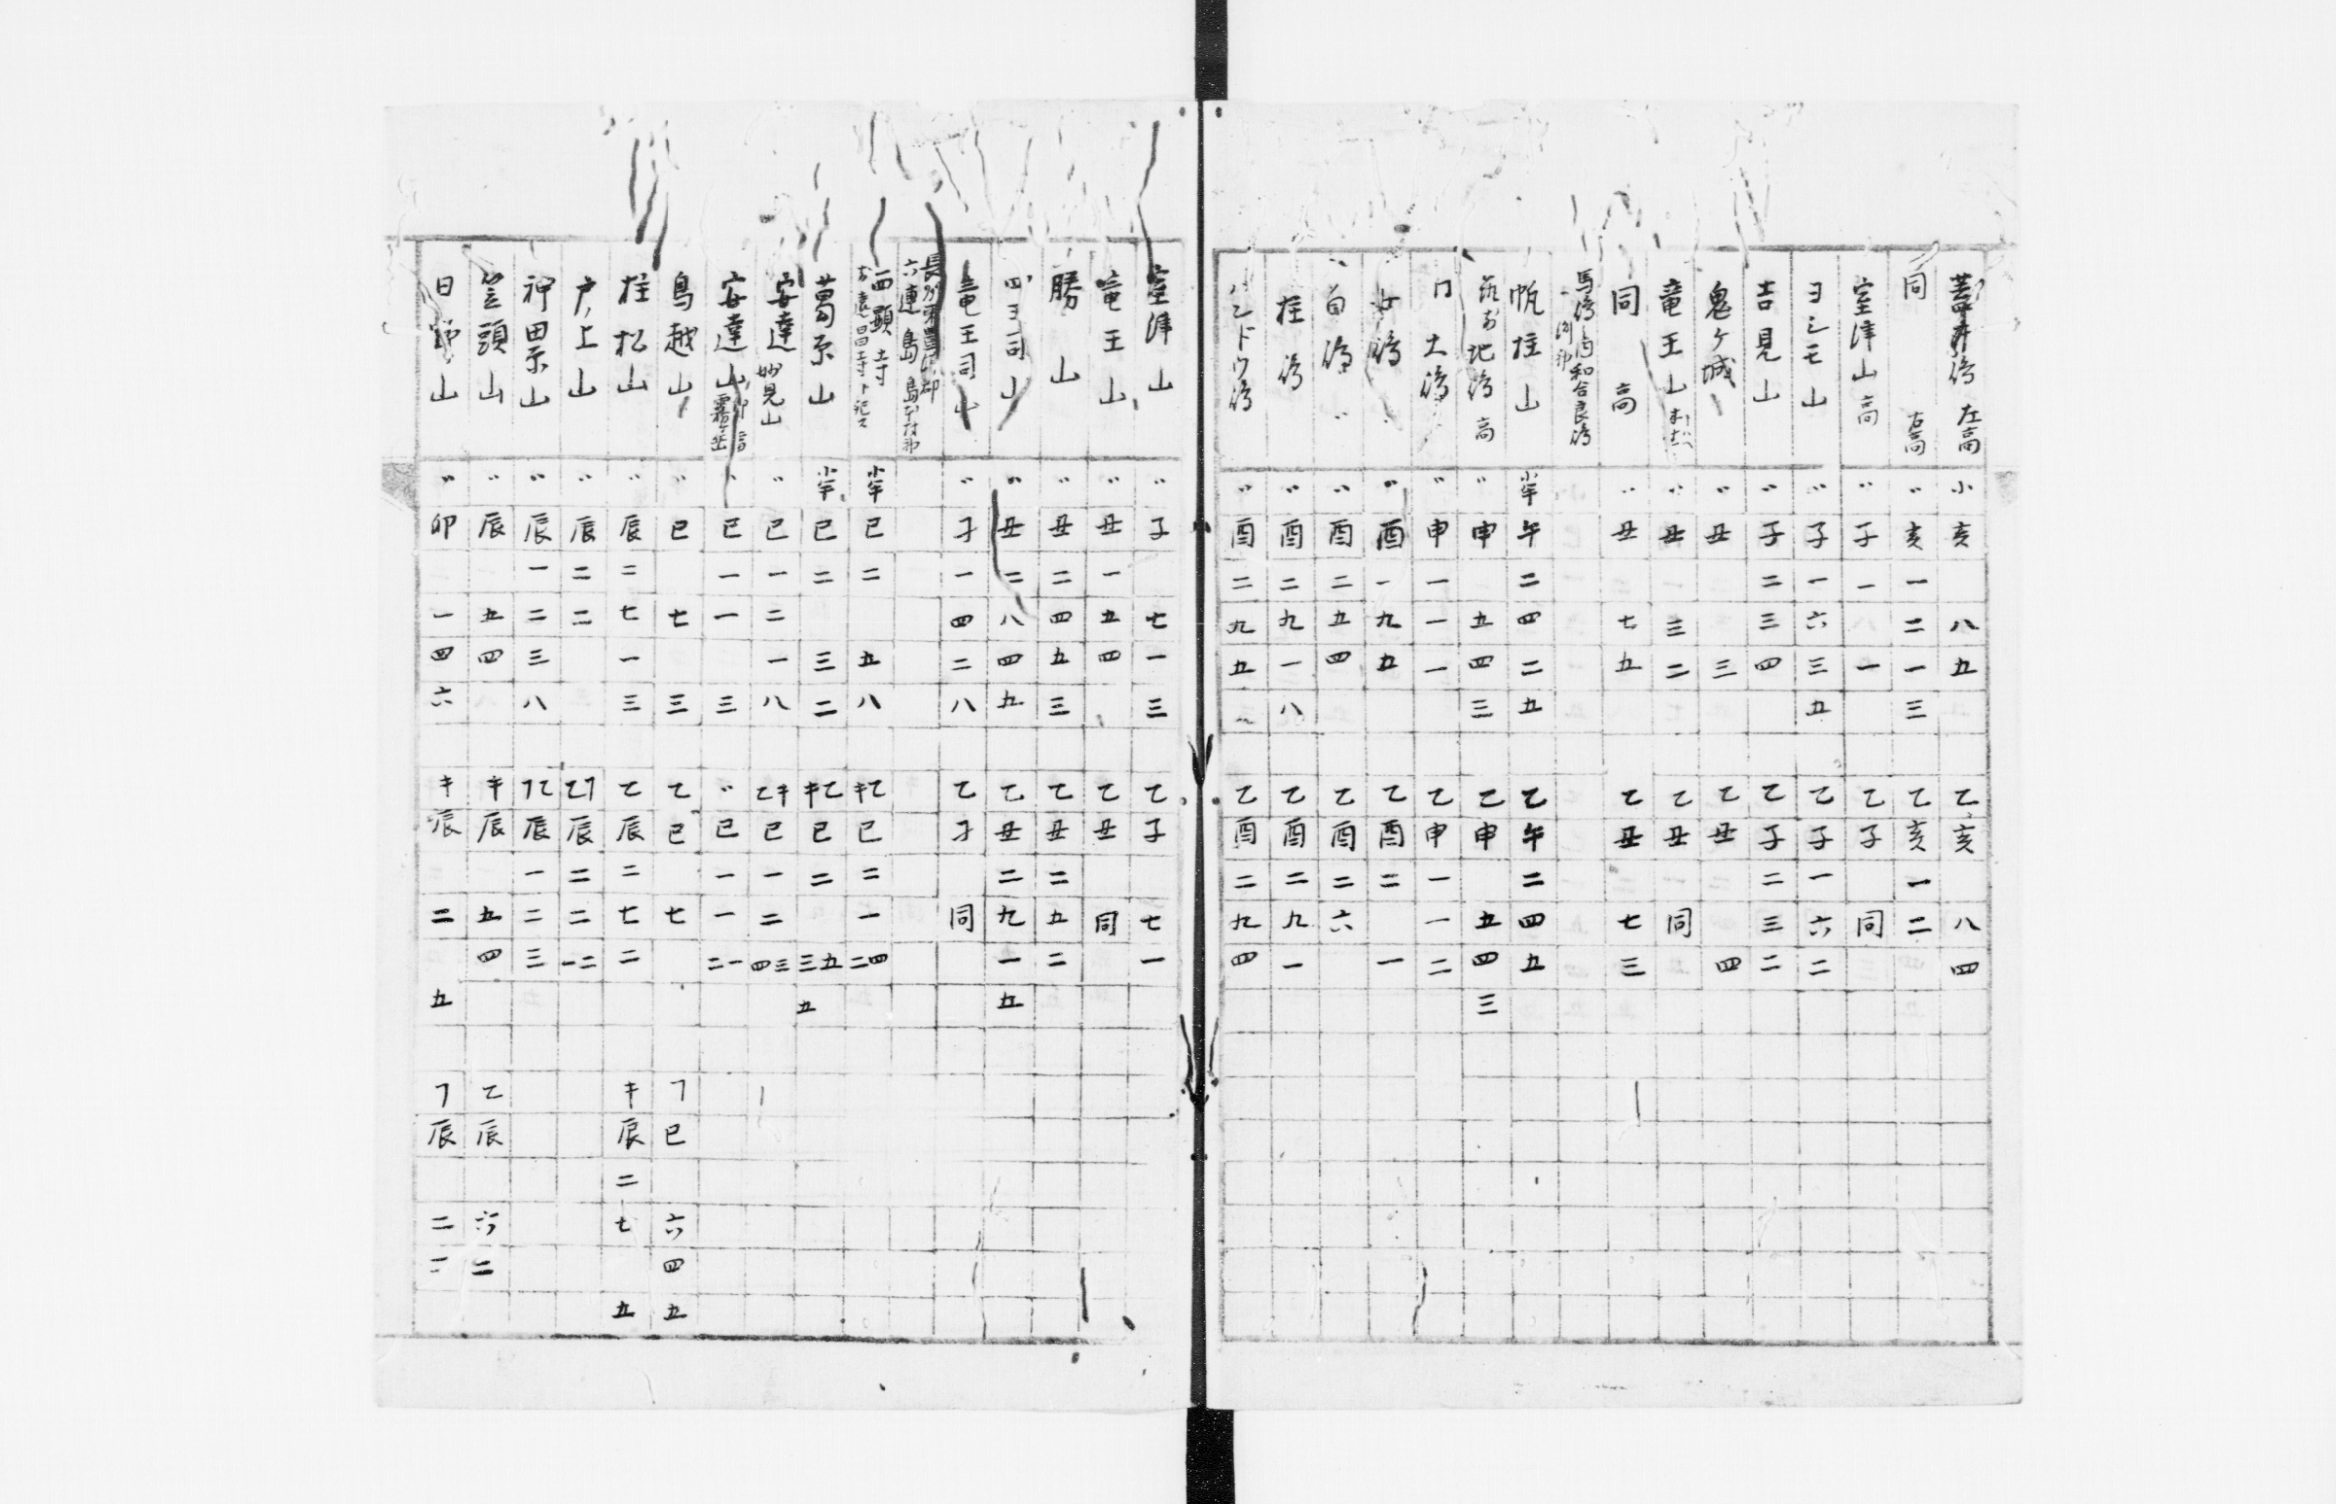 蓋井島 左高 小亥 八五 乙亥 八四
同 右高 〃亥一二一三 乙亥一二
室津山高 〃子一 一 乙子 同
ヨシモ山 〃子一六三五 乙子一六二
吉見山 〃子二三四 乙子二三二
鬼ヶ城 〃丑 三 乙丑 四
竜王山 〃丑 三二 乙丑 同
同 高 〃丑 七五 乙丑 七三
馬島内和合良島
帆柱山 小半午二四二五 乙午二四五
地島高 〃申 五四三 乙申 五四三
土島 〃申一一一 乙申一一二
女島 〃酉一九五 乙酉二 一
白島 〃酉二五四 乙酉二六
柱島 〃酉二九一八 乙酉二九一
ドウ島 〃酉二九五 乙酉二九四
室津山 〃子 七一三 乙子 七一
竜王山 〃丑一五四 乙丑 同
勝山 〃丑二四五三 乙丑二五二
四ヨ司山 〃丑二八四五 乙丑二九一五
竜王司山 〃子一四二八 乙子 同
六連島
西顕寺 小半巳二 五八 キ乙巳二一二四
葛原山 小半巳二 三二 キ乙巳二 三五五
安達妙見山 〃巳一二一八 乙キ巳一二四三
安達山 〃巳一一 三 〃巳一一二一
鳥越山 〃巳 七 三 乙巳 七 フ巳 六四五
柱松山 〃辰二七一三 乙辰二七二 キ辰二七 五
戸ノ上山 〃辰二二 乙フ辰二二一二
神田原山 〃辰一二三八 フ乙辰一二三
笠頭山 〃辰 五四 キ辰 五四 乙辰 六二
日野山 〃卯 一四六 キ辰 二 五 フ辰 二二